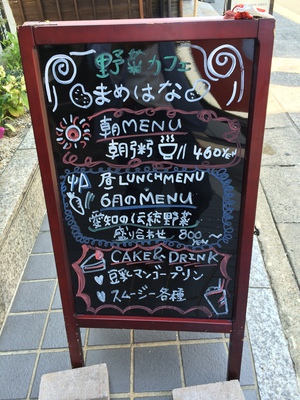 野菜カフェ
まめはな
朝MENU
朝粥 460yen
昼LUNCHMENU
6月のMENU
愛知の伝統野菜
盛り合わせ 800yen〜
CAKE&DRINK
豆乳マンゴープリン
スムージー各種